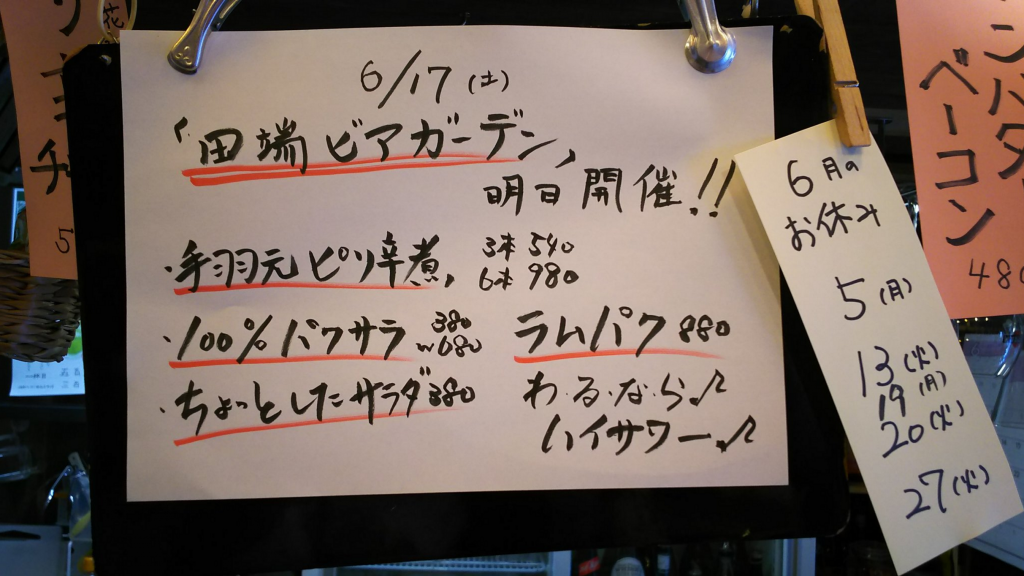 6/17(土)
「田端ビアガーデン」
明日開催!!
・手羽元ピリ辛煮、
3本 540
6本 980
・100%パクサラ 380
〜680
ラムパク 880
・ちょっとしたサラダ 380
わ・る・な・ら♪
ハイサワー♪
6月の
お休み
5(月)
13(火)
19(月)
20(火)
27(火)
ベーコン
480
花
5